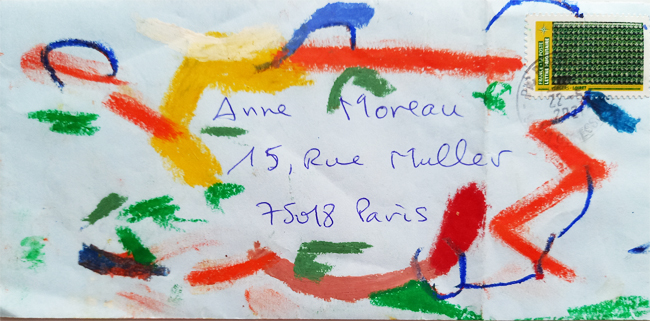 Anne Moreau
15, Rue Muller
75018 Paris